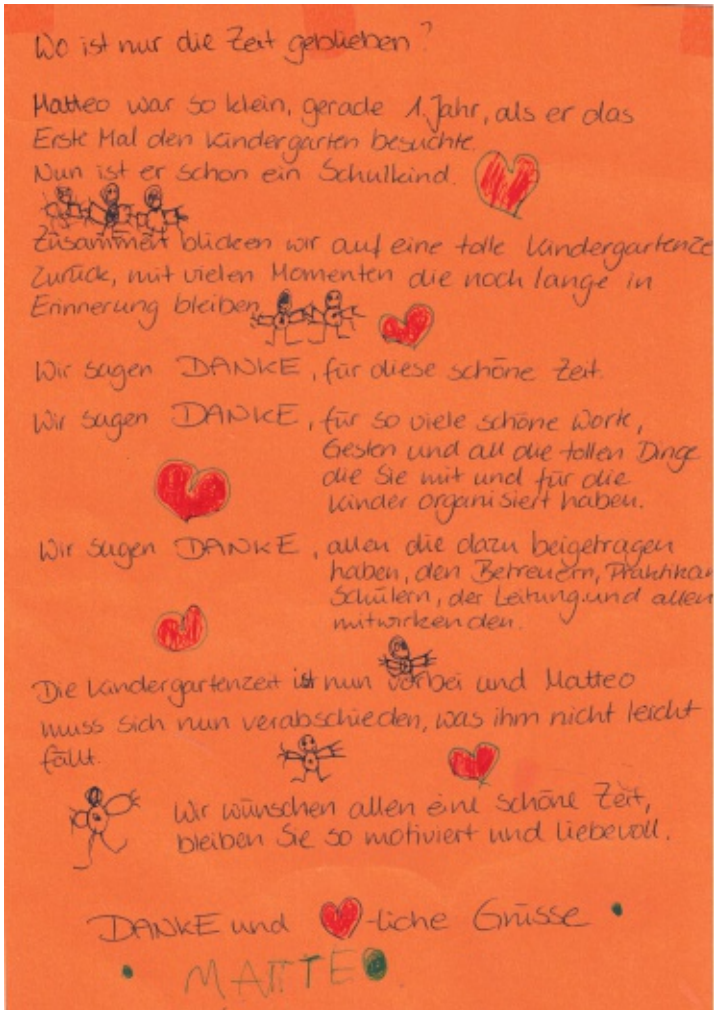 Wo ist nur die Zeit geblieben?
Matteo war so klein, gerade 1. Jahr, als er das
Erste Mal den Kindergarten besuchte.
Nun ist er schon ein Schulkind.
Zusammen blicken wir auf eine tolle Kindergartenze
Zurück, mit vielen Momenten die noch lange in
Erinnerung bleiben
Wir sagen DANKE, für diese schöne Zeit.
Wir sagen DANKE, für so viele schöne Worte,
Gesten und all die tollen Dinge
die Sie mit und für die
Kinder organisiert haben.
Wir sagen DANKE, allen die dazu beigetragen
haben, den Betreuern, Praktikan
Schülern, der Leitung und allen
mitwirkenden.
Die Kindergartenzeit ist nun vorbei und Matteo
muss sich nun verabschieden, was ihm nicht leicht
fällt.
Wir wünschen allen eine schöne Zeit,
bleiben Sie so motiviert und liebevoll.
DANKE und -liche Grüsse
MATTEO